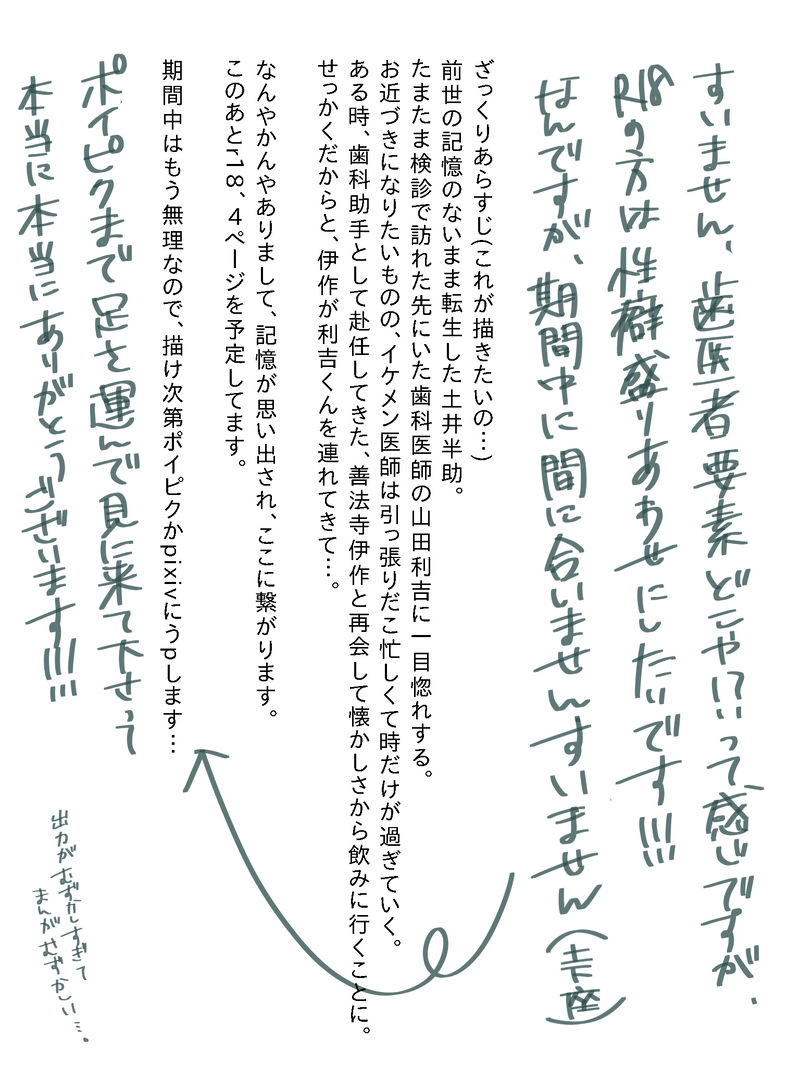 すいません、歯医者要素どこや!?って感じですが、
R18の方は性癖盛りあわせにしたいです!!!
なんですが、期間中に間に合いませんすいません(土下座)
ざっくりあらすじ(これが描きたいの…)
前世の記憶のないまま転生した土井半助。
たまたま検診で訪れた先にいた歯科医師の山田利吉に一目惚れする。
お近づきになりたいものの、イケメン医師は引っ張りだこ忙しくて時だけが過ぎていく。
ある時、歯科助手として赴任してきた、善法寺伊作と再会して懐かしさから飲みに行くことに。
せっかくだからと、伊作が利吉くんを連れてきて…。
なんやかんやありまして、記憶が思い出され、ここに繋がります。
このあとr18、4ページを予定してます。
期間中はもう無理なので、描け次第ポイピクかpixivにうpします…
ポイピクまで足を運んで見に来て下さって
本当に本当にありがとうございます!!!!
出力がむずかしすぎて
まんがむずかしい…。